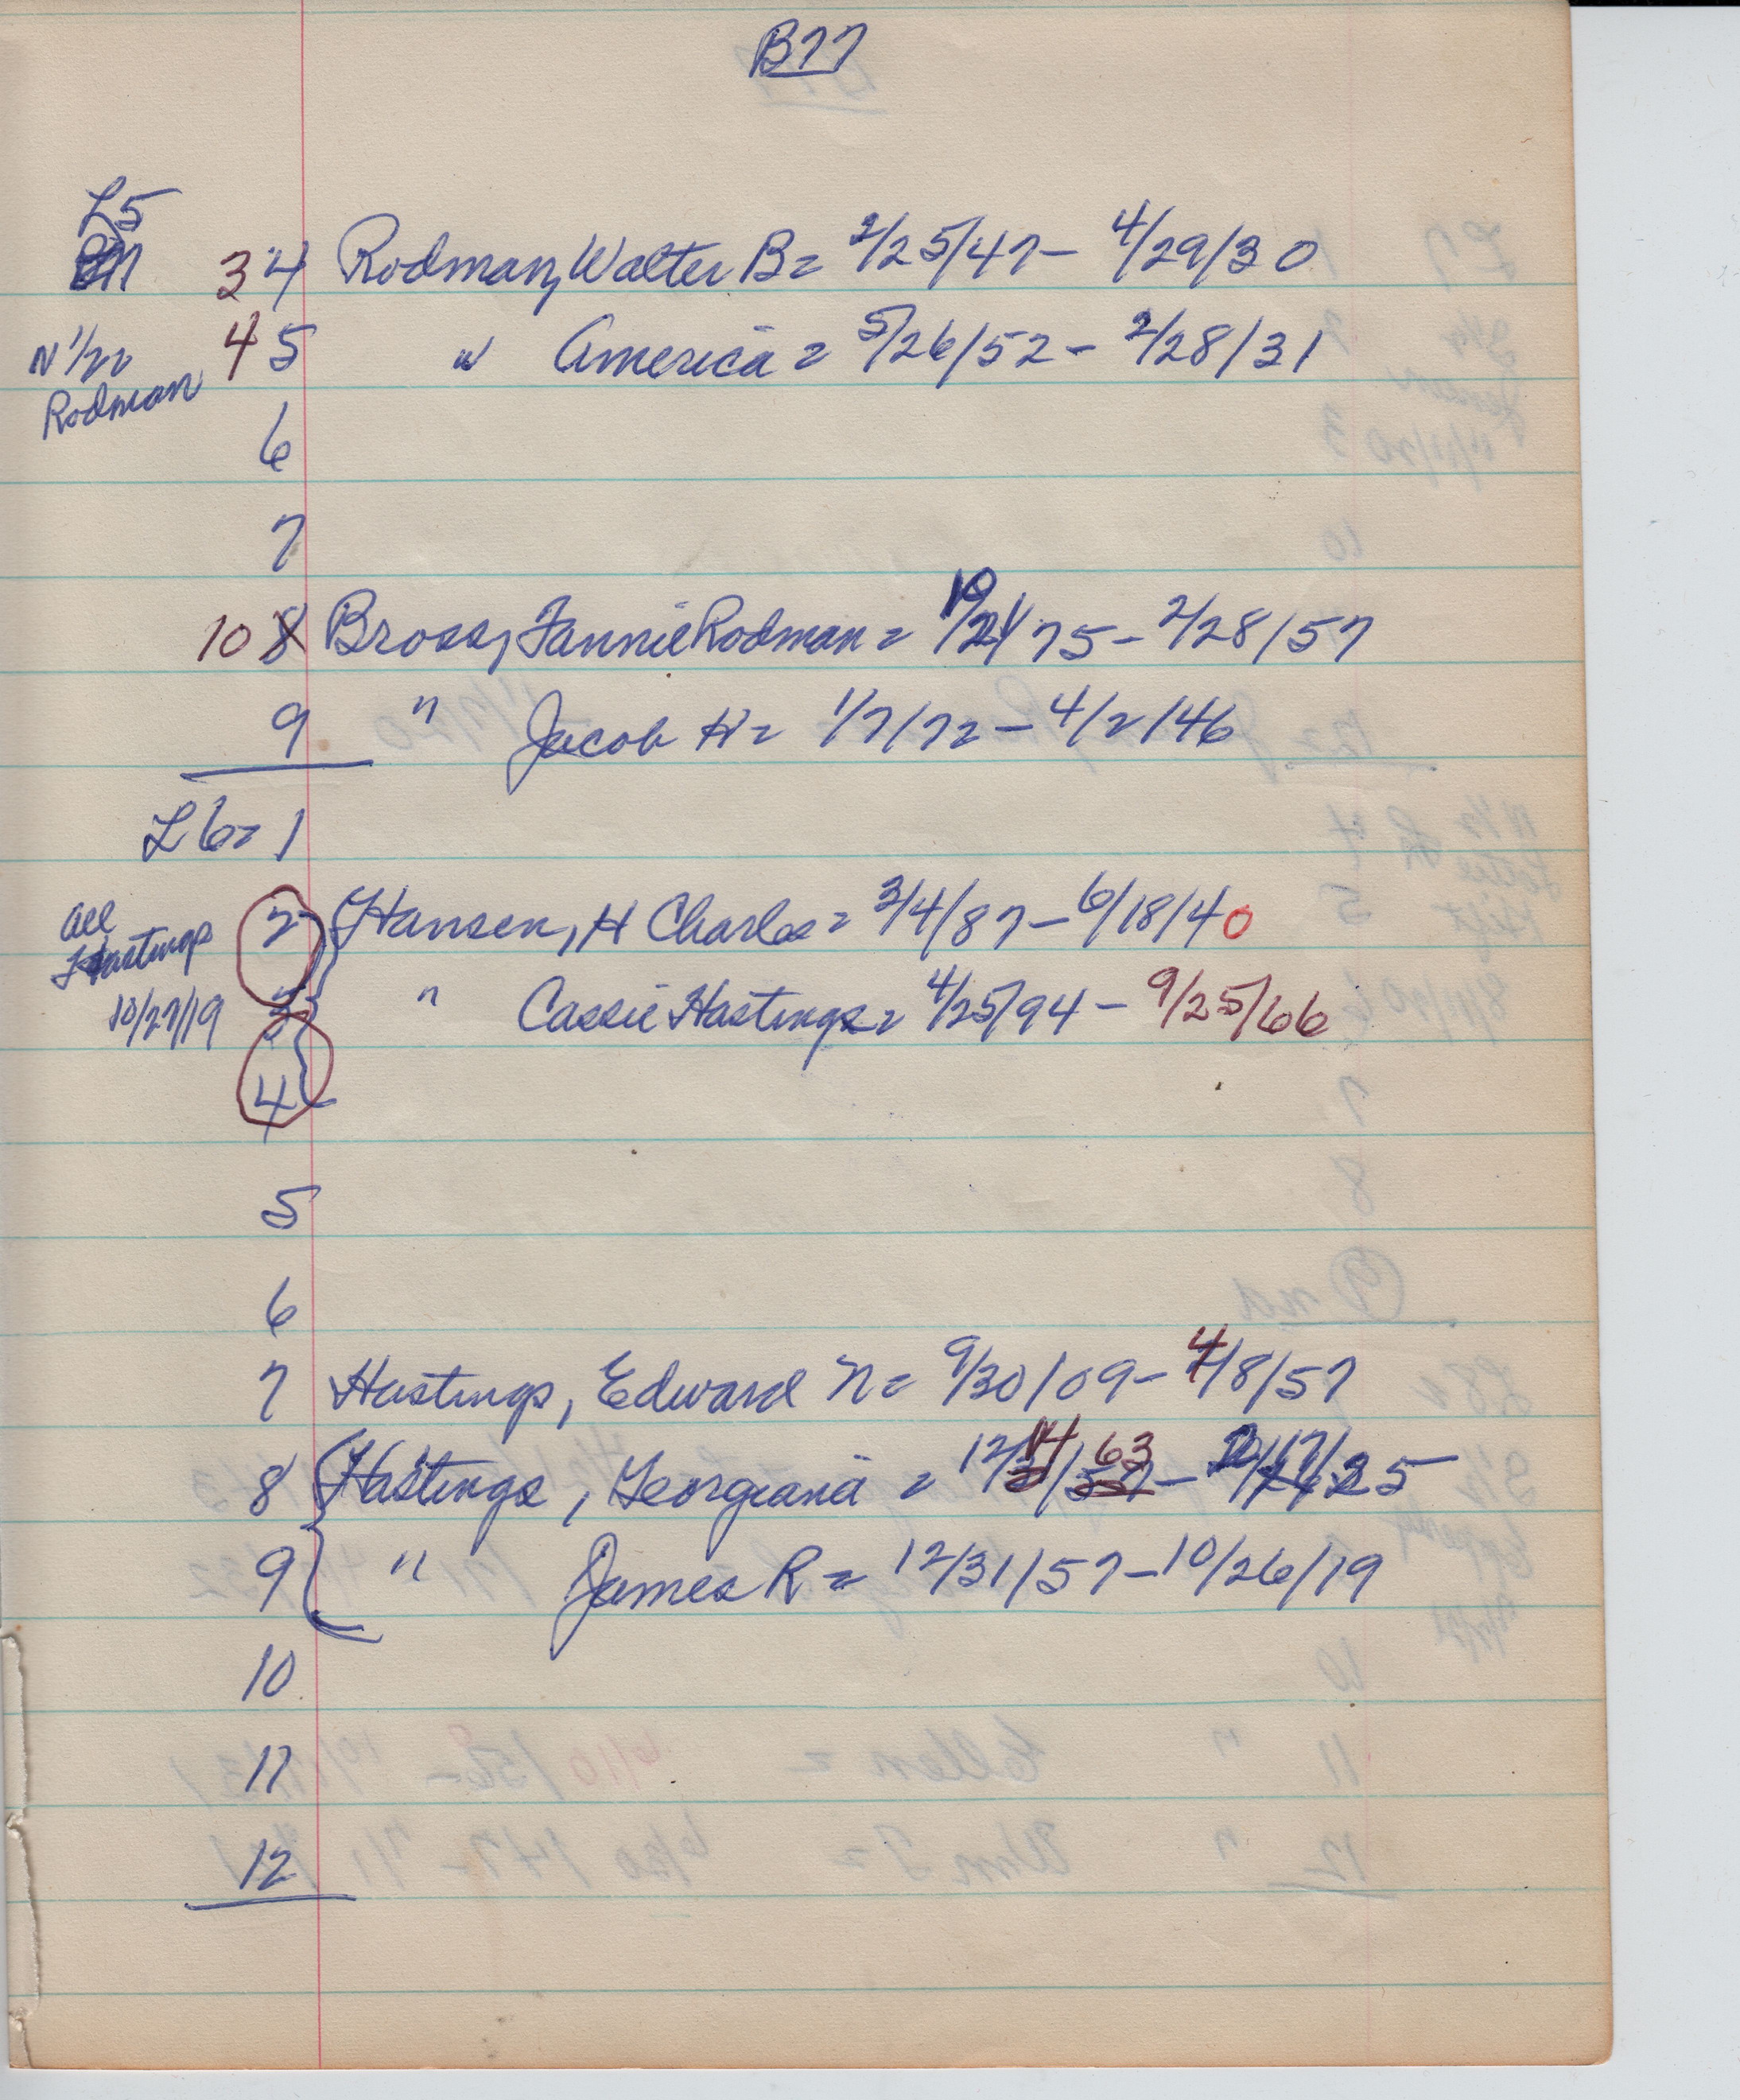 B77
L5
3 4 Rodman, Walter B = 2/25/47 - 4/29/30
N 1/20 4 5 " America = 5/26/52 - 2/28/31
Rodman
6
7
10 8 Bross, Fannie Rodman = 10/21/75 - 2/28/57
9 " Jacob H = 1/7/72 - 4/2/46
L6 = 1
All Hastings 2 Hansen, H Charles = 3/4/87 - 6/18/40
10/27/19 3 " Cassie Hastings = 4/25/94 - 9/25/66
4
5
6
7 Hastings, Edward N = 9/30/09 - 4/8/57
8 Hastings, Georgiana = 12/14/63 - 25
9 " James R = 12/31/57 - 10/26/19
10
11
12